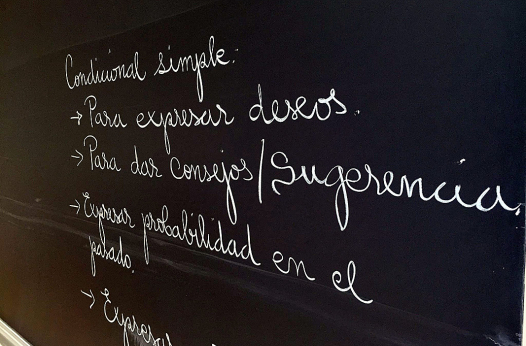 Condicional simple:
→ Para expresar deseos.
→ Para dar Consejos/Sugerencia.
→ Expresar probabilidad en el
pasado.
→ Expresar